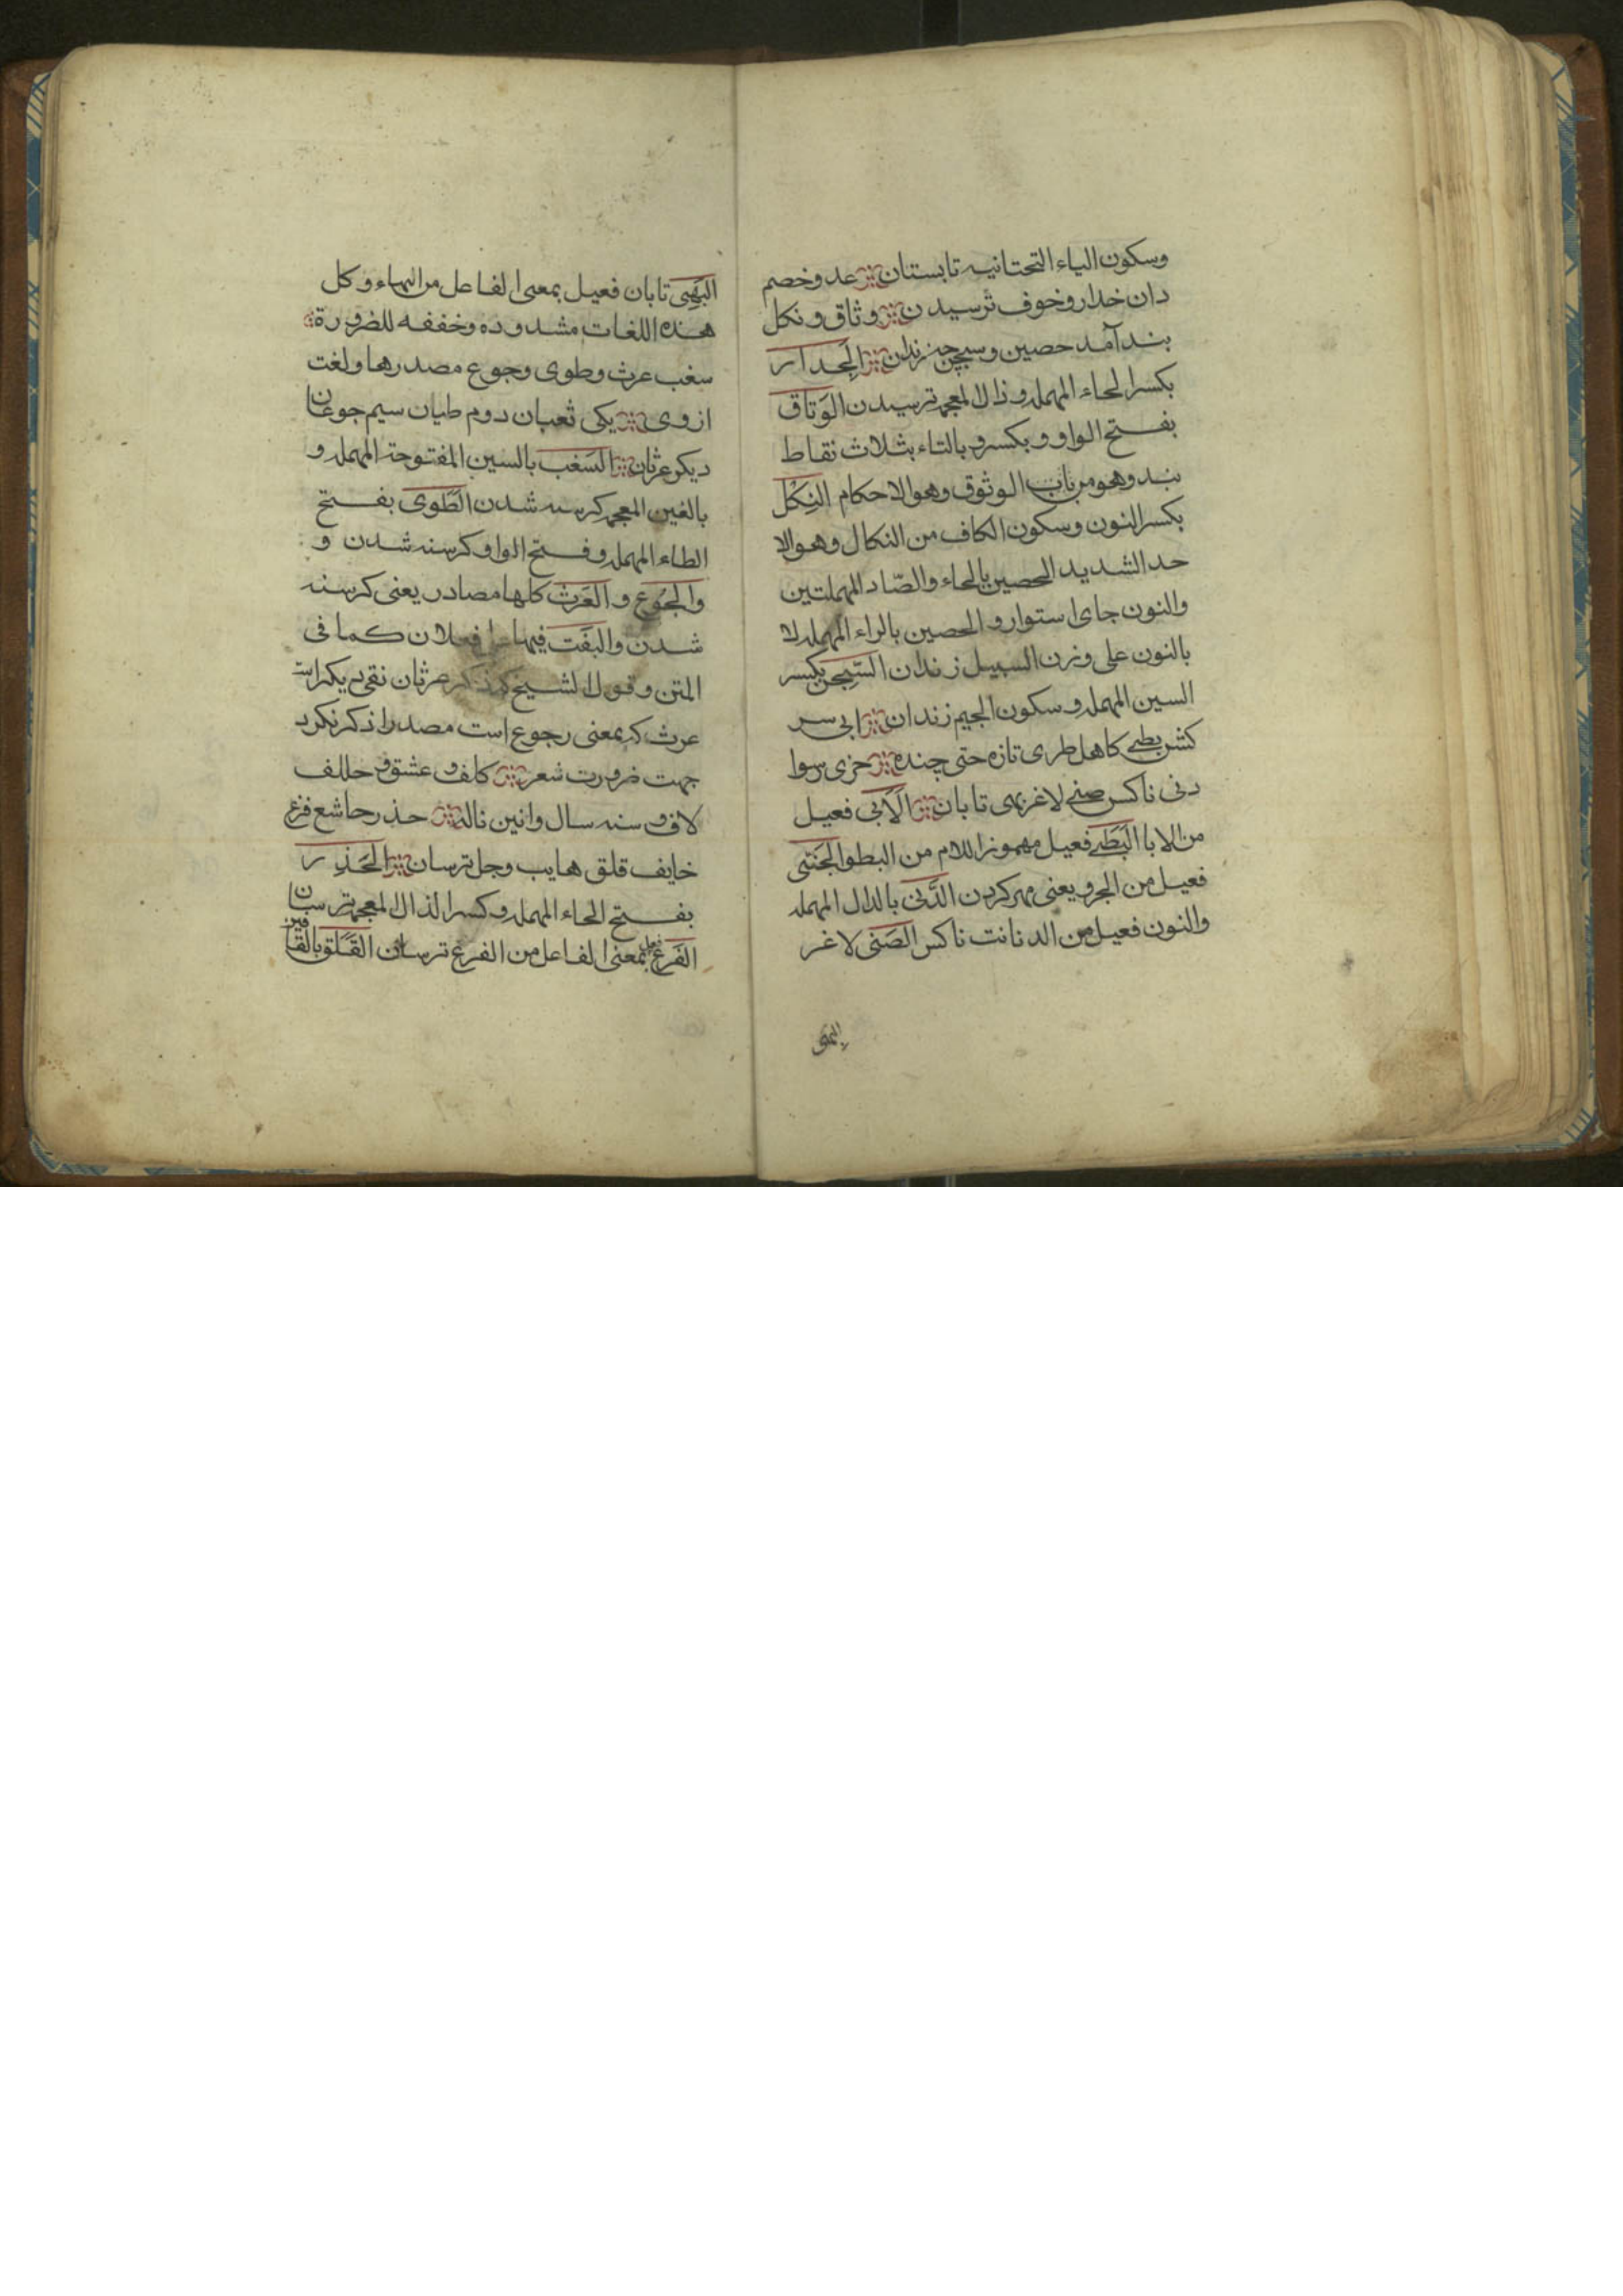 وسكون الياء التحتانيه تابستان عد وخصم
دان خدار وخوف ترسيدن وثاق ونكل
بند آمد حصين وسجن زندان الحذار
بكسر الحاء المهمله وذال المعجمه ترسيدن الوَثاق
بفتح الواو و بكسر و بالتاء بثلاث نقاط
بند وهو من باب الوثوق وهو الاحكام النِكْل
بكسر النون وسكون الكاف من النكال وهو الا
حد الشديد الحصين بالحاء والصّاد المهملتين
والنون جاى استوار و الحصين بالراء المهمله لا
بالنون على وزن السبيل زندان السِّجن بكسر
السين المهمله و سكون الجيم زندان ابى سر
كش بطىء كاهل طرى تازه جنى چنده خزى رسوا
دنى ناكس ضنى لاغر بهى تابان الَابى فعيل
من الابا البَطىء فعيل مهموز اللام من البطو الجَنىّ
فعيل من الجرو يعنى مهر كردن الدَّنى بالدال المهمله
والنون فعيل من الدنائت ناكس الضَنى لاغر
البهى
البَهِى تابان فعيل بمعنى الفاعل من البهاء و كل
هذه اللغات مشدوده وخففه للضرورة
سغب عرث وطوى وجوع مصدرها ولغت
از وى يكى ثعبان دوم طيان سيم جوعان
ديكر عرثان السَغب بالسين المفتوحة المهمله و
بالغين المعجمه كرسنه شدن الطَوى بفتح
الطاء المهمله و فتح الواو كرسنه شدن و
والجُوع و العَرث كلها مصادر يعنى كرسنه
شدن والبفَت فيها على فعلان كما فى
المتن و قول الشيخ كه ذكر عرثان نفى يكراست
عرث كه بمعنى رجوع است مصدر را ذكر نكرد
جهت ضرورت شعر كلف و عشق و حلف
لاف و سنه سال وانين ناله حذر حاشع فزع
خايف قلق هايب وجل ترسان الحَذِر
بفتح الحاء المهمله و كسر الذال المعجمه ترسان
الفَزع فعل بمعنى الفاعل من الفزع ترسان القَلق بالقافين